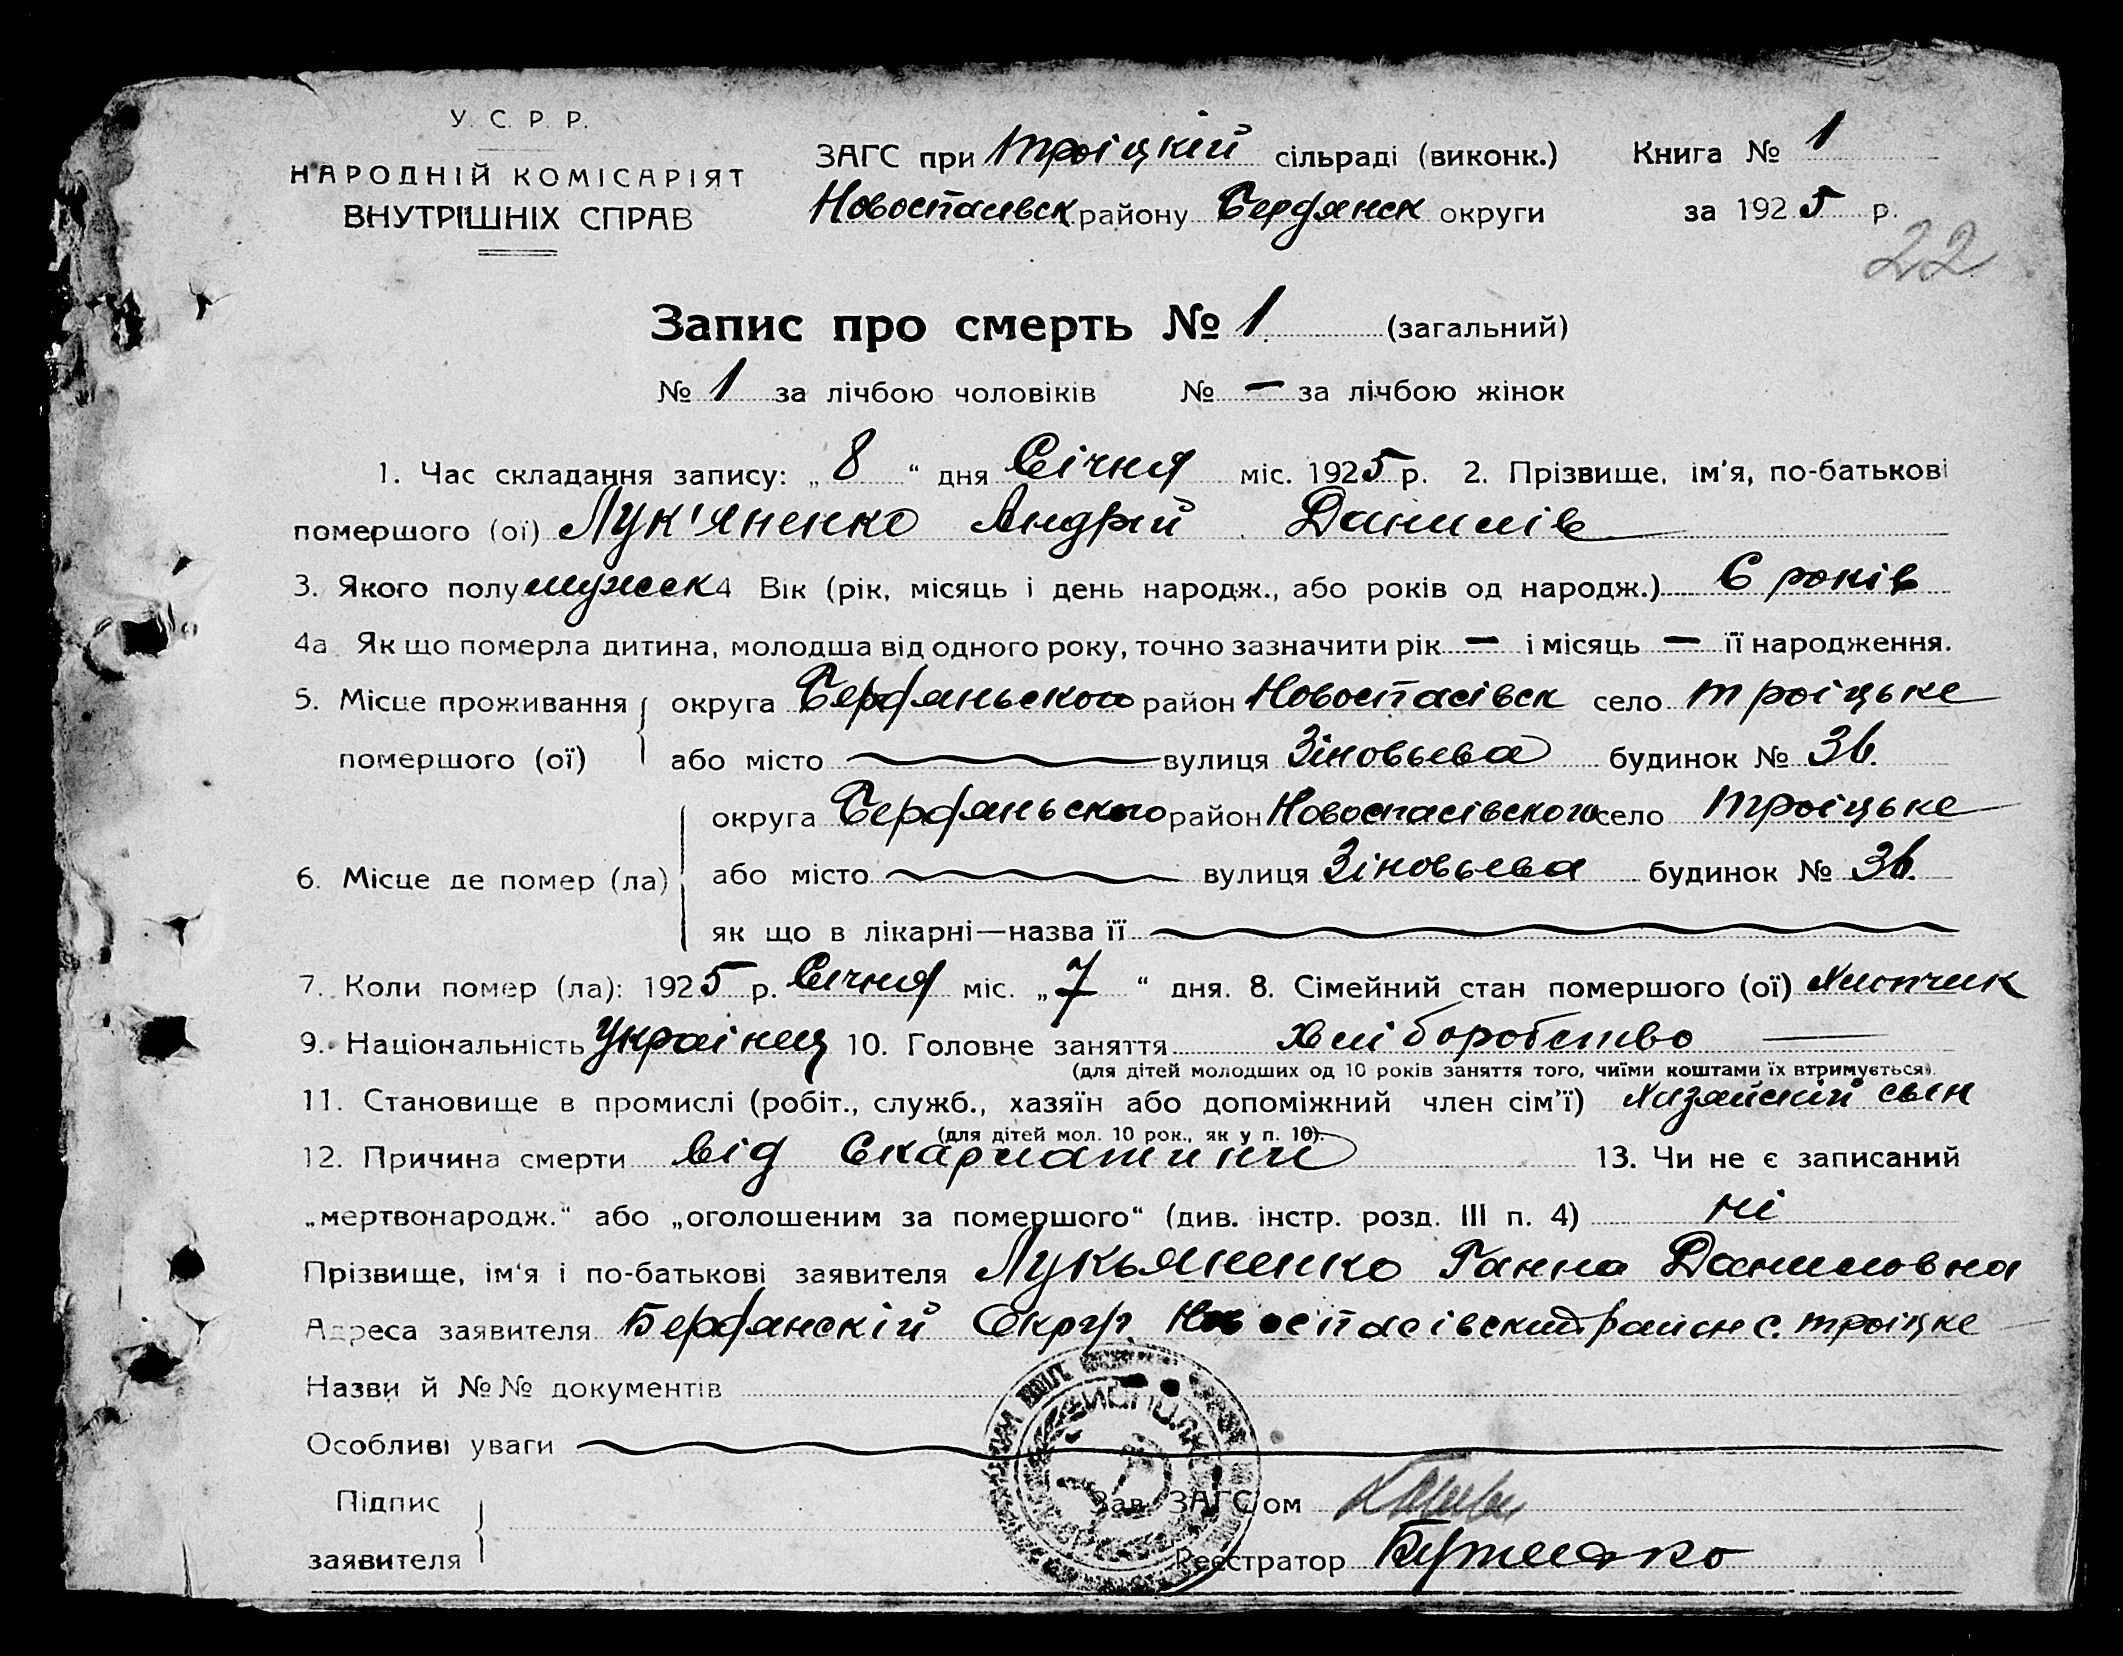 У. С. Р. Р.
НАРОДНІЙ КОМІСАРІЯТ
ВНУТРІШНІХ СПРАВ
ЗАГС при Троіцкій сільраді (виконк.)
Новоспаивск району Бердянск округи
Книга № 1
за 1925 р.
22
Запис про смерть № 1 (загальний)
№ 1 за лічбою чоловіків № — за лічбою жінок
1. Час складання запису: „8“ дня Січня міс. 1925 р. 2. Прізвище, ім'я, по-батькові
помершого (ої) Лук'яненко Андрій Данилів
3. Якого полу мужеск 4 Вік (рік, місяць і день народж., або років од народж.) 6 років
4а Як що померла дитина, молодша від одного року, точно зазначити рік — і місяць — її народження.
5. Місце проживання помершого (ої) округа Бердяньского район Новоспасівск село Троіцьке
або місто вулиця Зіновьева будинок № 36.
6. Місце де помер (ла) округа Бердяньского район Новоспасівского село Троіцьке
або місто вулиця Зіновьева будинок № 36.
як що в лікарні—назва її
7. Коли помер (ла): 1925 р. Січня міс. „7“ дня. 8. Сімейний стан помершого (ої) Хлопчик
9. Національність Украінец 10. Головне заняття Хліборобство
(для дітей молодших од 10 років заняття того, чиїми коштами їх втримується).
11. Становище в промислі (робіт., служб., хазяїн або допоміжний член сім'ї) Хазяйский сын
(для дітей мол. 10 рок., як у п. 10).
12. Причина смерти від Скарлатини 13. Чи не є записаний
„мертвонародж.“ або „оголошеним за помершого“ (див. інстр. розд. III п. 4) ні
Прізвище, ім'я і по-батькові заявителя Лукьяненко Ганна Даниловна
Адреса заявителя Бердянскій Округ. Новоспасівский район с. Троіцке
Назви й №№ документів
Особливі уваги
Підпис заявителя
Зав. ЗАГС'ом
Реєстратор